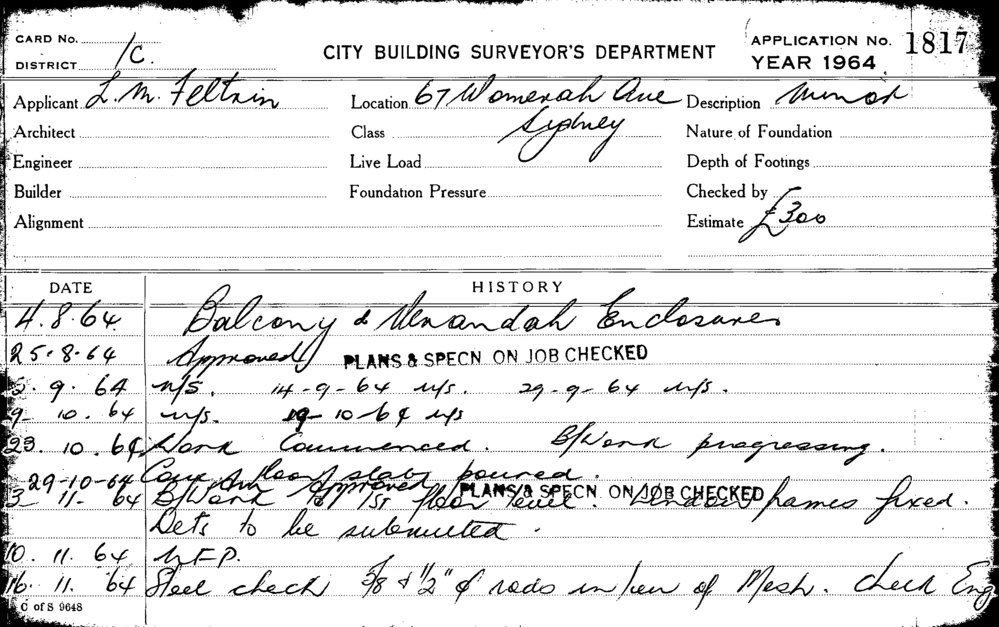 CARD No. 1C.
CITY BUILDING SURVEYOR'S DEPARTMENT
APPLICATION No. 1817
DISTRICT
YEAR 1964
Applicant L. M. Feltrin Location 67 Womerah Ave Description Minor
Architect Class Sydney Nature of Foundation
Engineer Live Load Depth of Footings
Builder Foundation Pressure Checked by
Alignment Estimate £300
DATE HISTORY
4.8.64. Balcony & Verandah Enclosures
25.8.64 Approved PLANS & SPECN ON JOB CHECKED
9.64 n/s. 14-9-64 n/s. 29-9-64 n/s.
9-10.64 n/s. 19-10-64 n/s
23.10.64 Work Commenced. B/Work progressing.
29-10-64 Conc floor slabs poured.
Approved PLANS & SPECN. ON JOB CHECKED
3-11-64 B/Work to 1st floor level. Window frames fixed.
Dets to be submitted.
10.11.64 N.F.P.
16.11.64 Steel check 5/8 & 1/2" ¢ rods in lieu of Mesh. Check Eng
C of S 9648